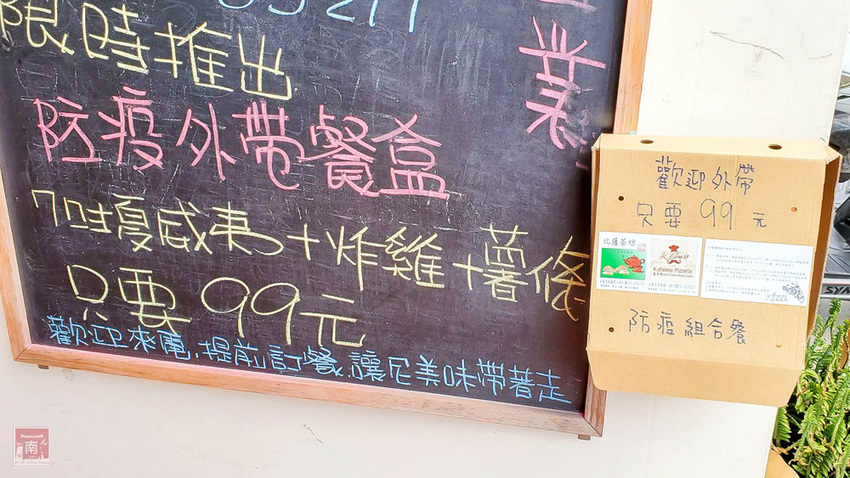 業
限時推出
防疫外帶餐盒
7吋夏威夷+炸雞+薯條
只要 99元
歡迎來電,提前訂餐,讓您美味帶著走
歡迎外帶
只要 99 元
比薩茶坊
K.cheese Pizzeria
防疫組合餐
南